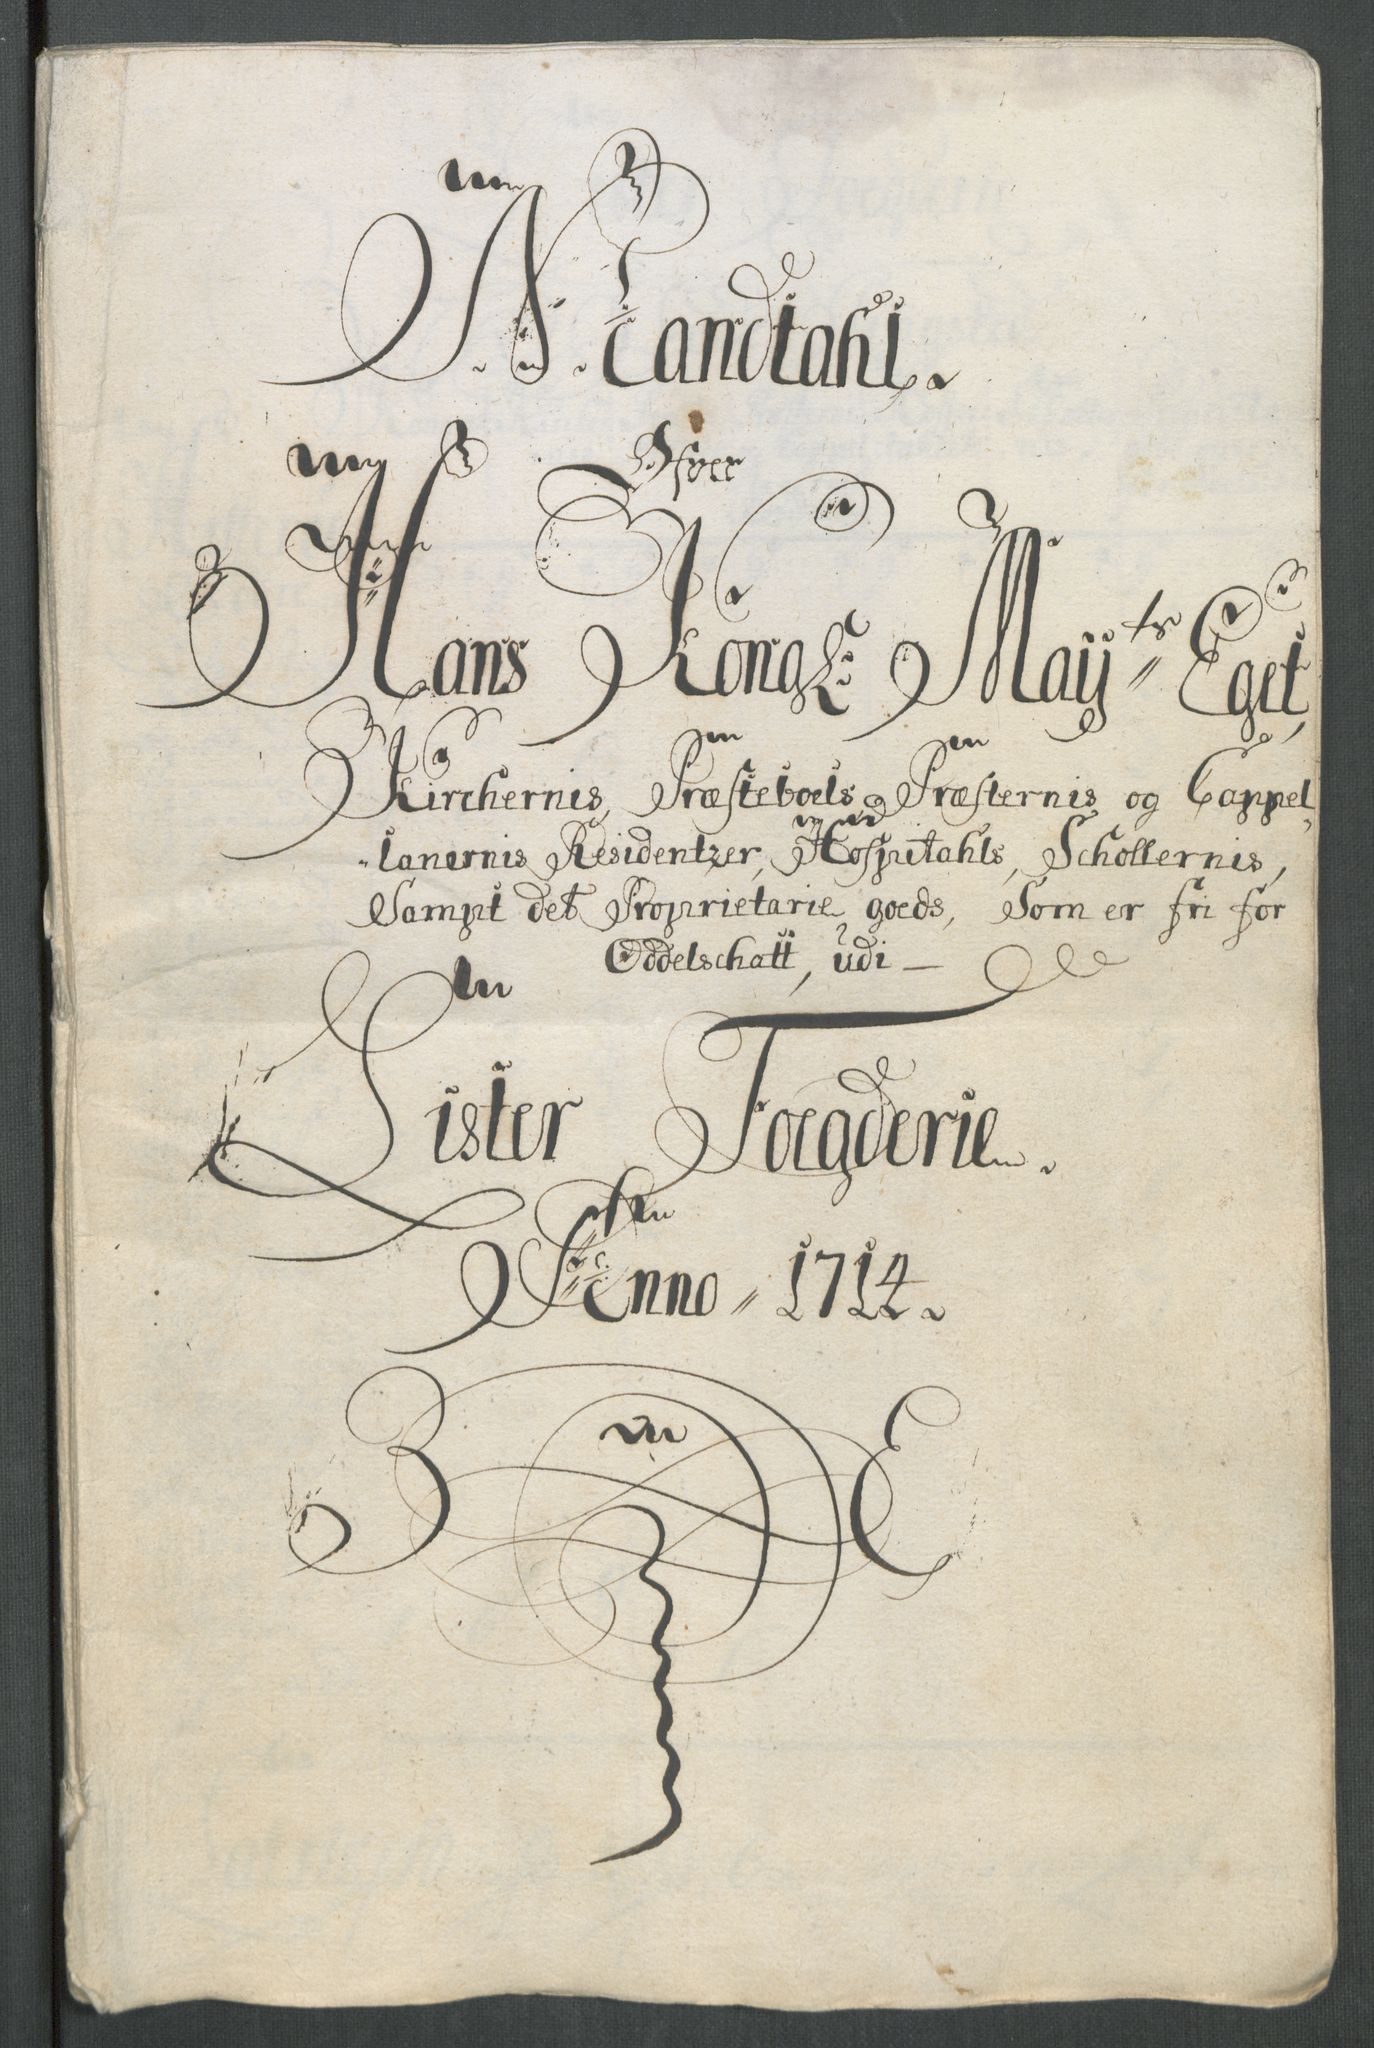 Mandtahl.
Ofver
Hans Kongl: May:ts Eget,
Kirchernis, Præsteboels, Præsternis og Cappel,,
,,lanernis Residentzer, Hospitahls, Schollernis,
Sampt det Proprietarie goeds, Som er fri for
Oddelschatt, udi —
Lister Foegderie.
Anno 1714.